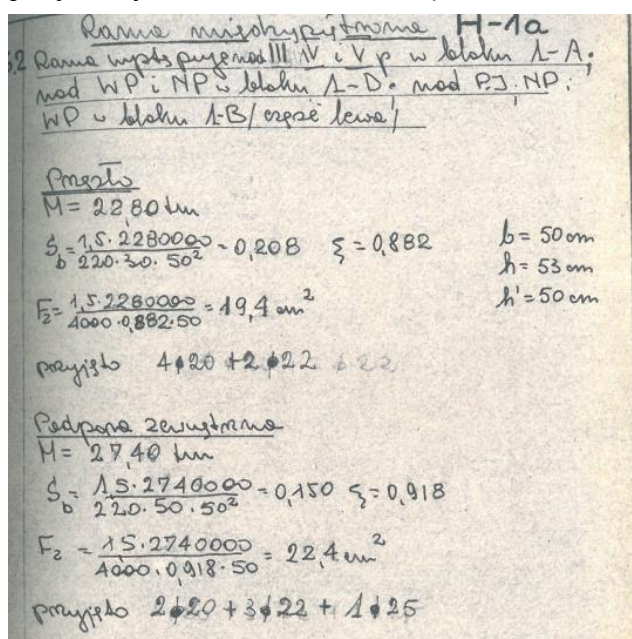 Rama międzypiętrowa H-1a
5.2 Rama występuje nad III, IV i V p w bloku 1-A.
nad WP i NP w bloku 1-D. nad P.J; NP;
WP w bloku 1-B /część lewa/
Przęsło
M = 22,80 tm
S_b = 1,5·2280000 / 220·30·50² = 0,208 ξ = 0,882 b = 50 cm
h = 53 cm
F_z = 1,5·2280000 / 4000·0,882·50 = 19,4 cm² h' = 50 cm
przyjęto 4ϕ20 + 2ϕ22
Podpora zewnętrzna
M = 27,40 tm
S_b = 1,5·2740000 / 220·50·50² = 0,150 ξ = 0,918
F_z = 1,5·2740000 / 4000·0,918·50 = 22,4 cm²
przyjęto 2ϕ20 + 3ϕ22 + 1ϕ25